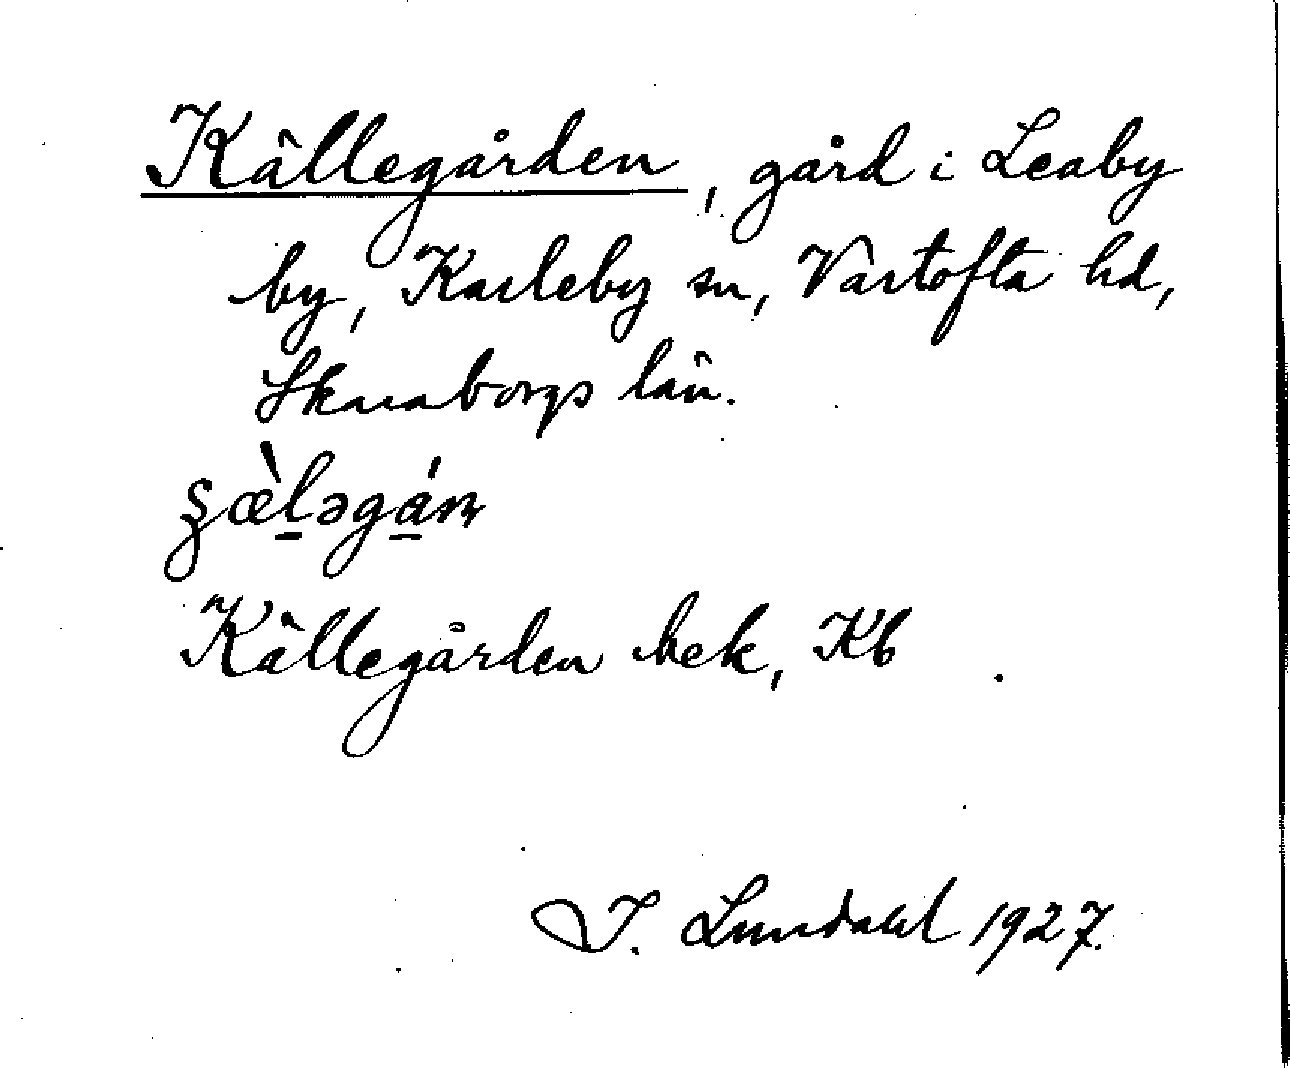 Källegården, gård i Leaby
by, Karleby sn, Vartofta hd,
Skaraborgs län.
Källegården bek, Kb
I. Lundahl 1927.